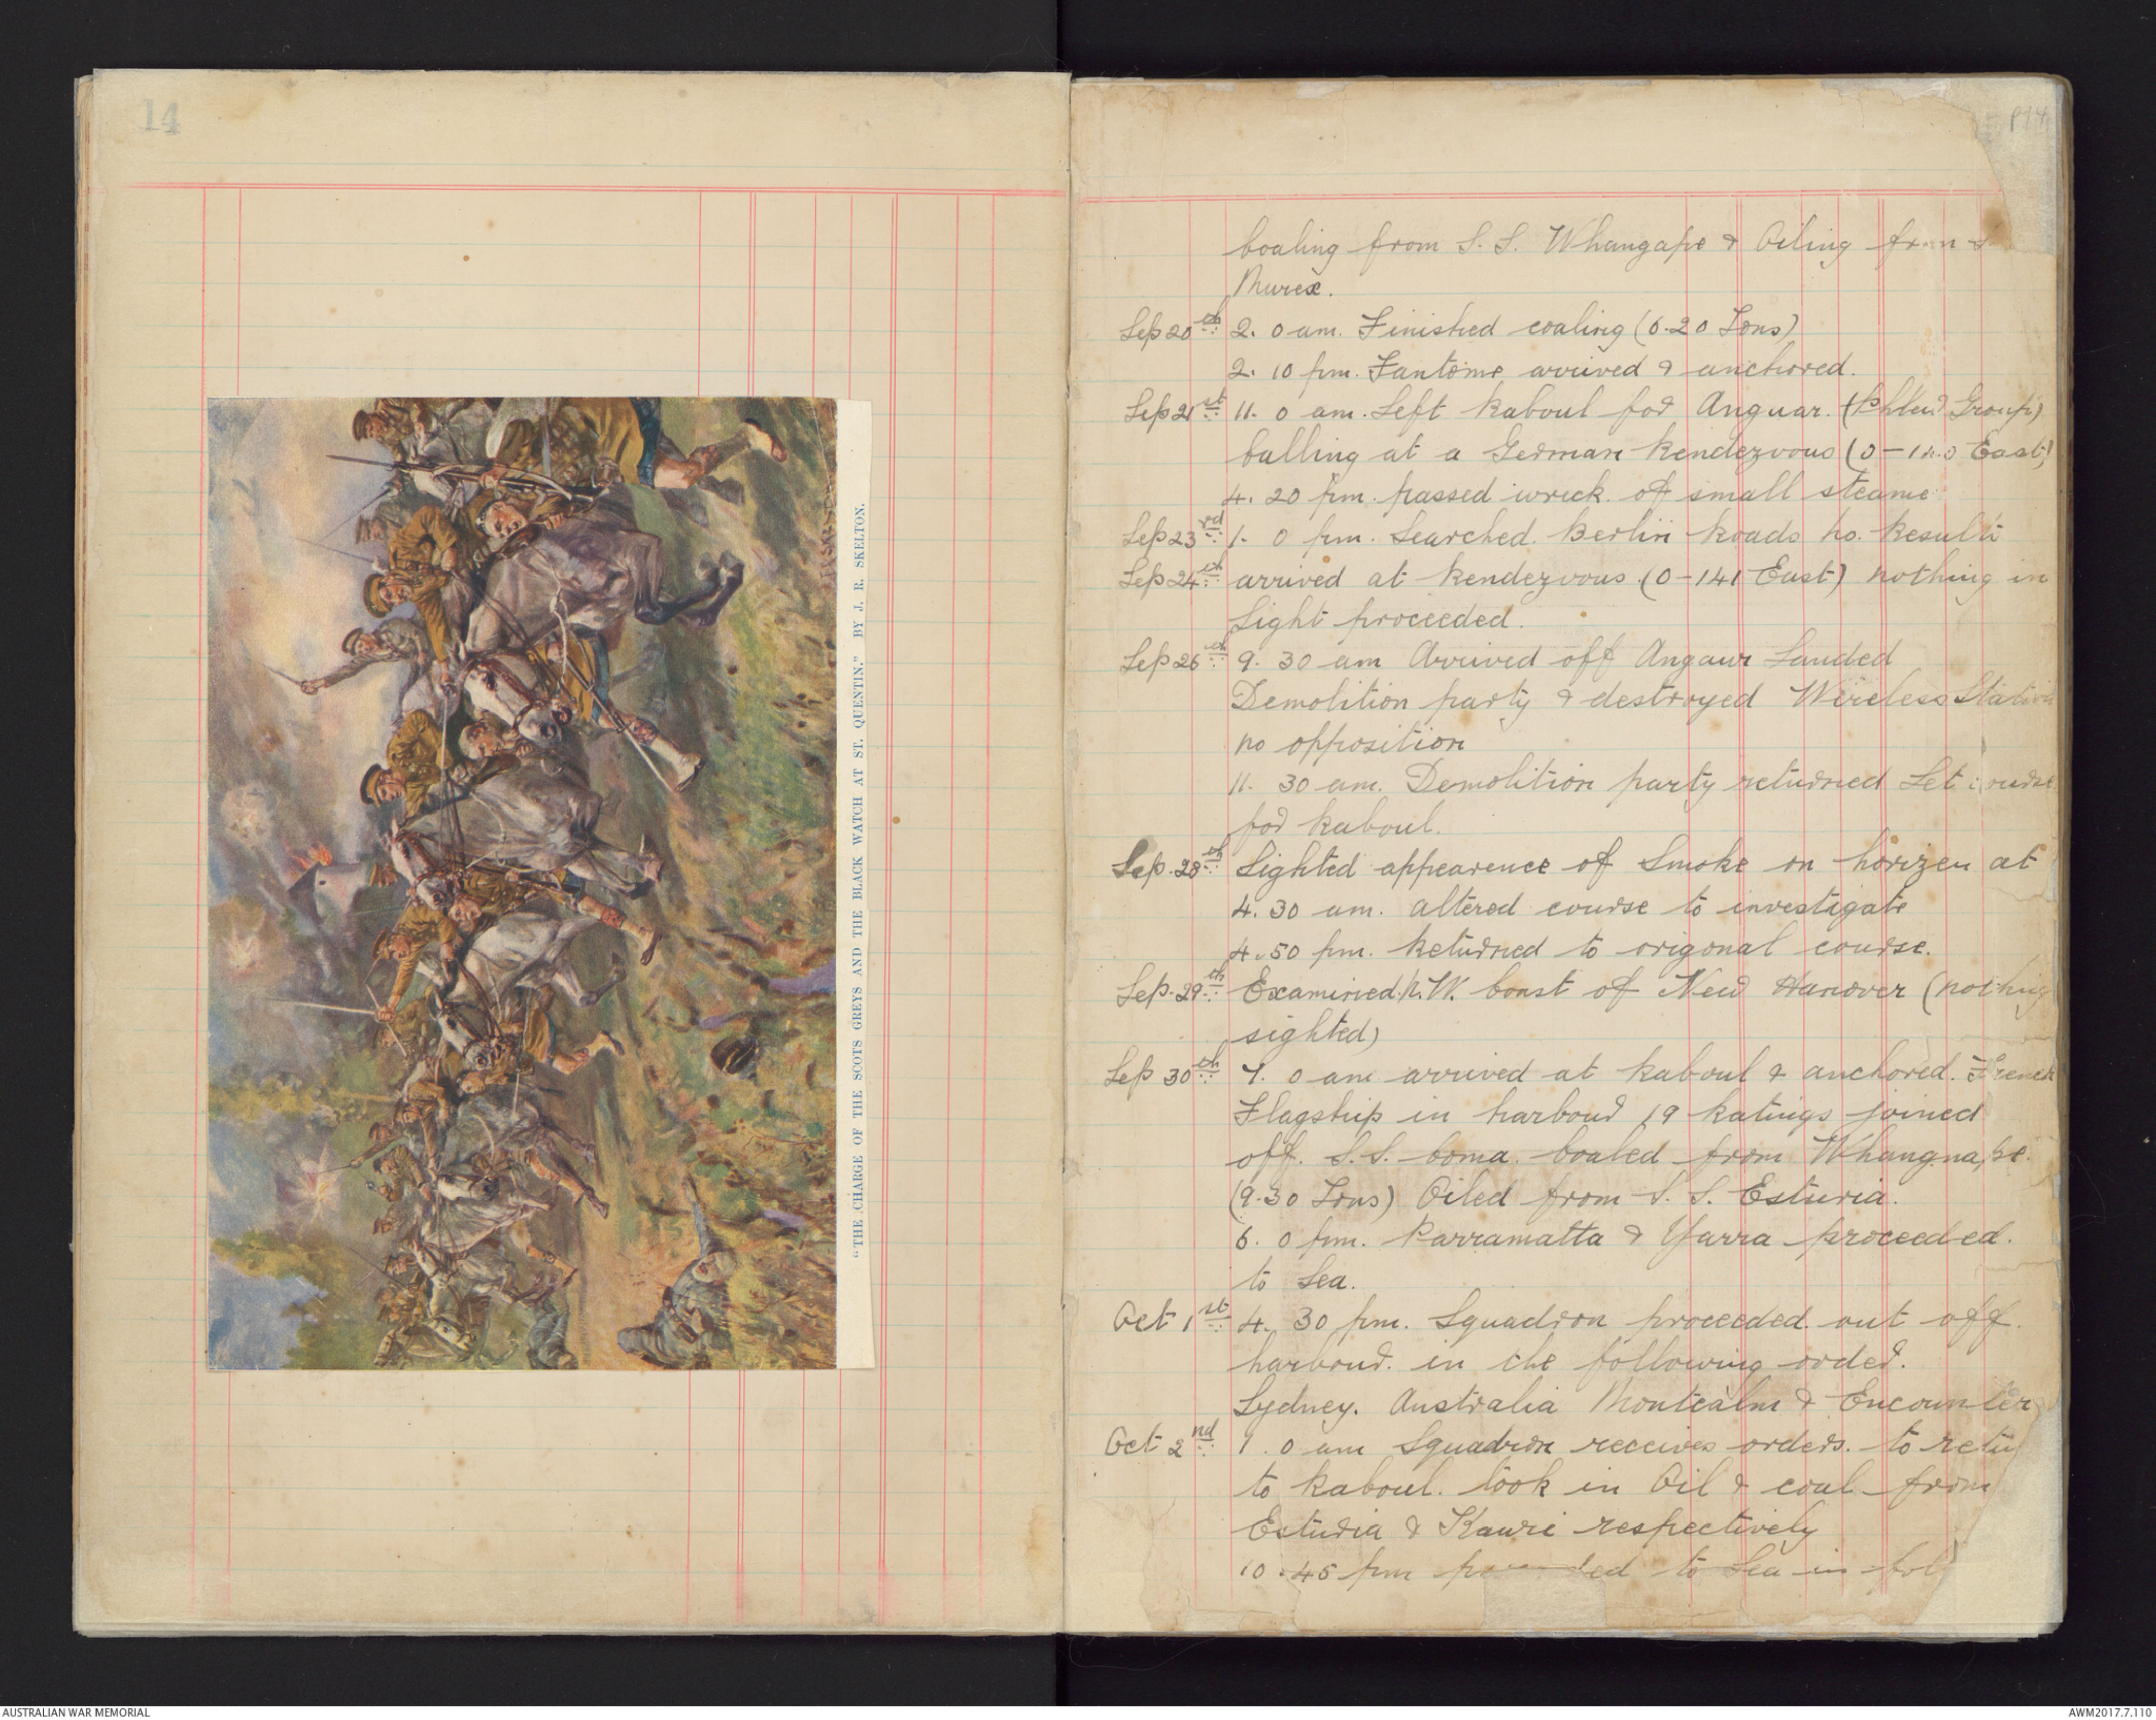 14
"THE CHARGE OF THE SCOTS GREYS AND THE BLACK WATCH AT ST. QUENTIN." BY J. R. SKELTON.
P14
Coaling from S. S. Whangape & Oiling from
Murex.
Sep 20th 2. 0 am. Finished coaling (6.20 Tons)
2. 10 pm. Fantome arrived & anchored.
Sep 21st 11. 0 am. Left Raboul for Anguar. ( Group)
Calling at a German Rendezvous (0 - 140 East)
4. 20 pm. passed wreck of small steame
Sep 23rd 1. 0 pm. Searched Berlin Roads no. Result
Sep 24th arrived at Rendezvous (0 - 141 East) nothing in
Sight proceeded.
Sep 26th 9. 30 am Arrived off Angaur Landed
Demolition party & destroyed Wireless Station
no opposition
11. 30 am. Demolition party returned Set course
for Raboul.
Sep. 28th Sighted appearence of Smoke on horizen at
4. 30 am. altered course to investigate
4. 50 pm. Returned to origonal course.
Sep. 29th Examined N.W. Coast of New Hanover (nothing
sighted)
Sep 30th 7. 0 am arrived at Raboul & anchored. French
Flagship in harbour 19 Ratings joined
off. S.S. Coma. Coaled from Whangnape.
(9.30 Tons) Oiled from S. S. Esturia.
6. 0 pm. Parramatta & Yarra proceeded.
to Sea.
Oct 1st 4. 30 pm. Squadron proceeded out off
harbour. in the following order.
Sydney. Australia Montcalm & Encounter
Oct 2nd 1. 0 am Squadron receives orders. to retu
to Raboul. took in Oil & coal from
Esturia & Kauri respectively
10. 45 pm proceeded to Sea in fol
AUSTRALIAN WAR MEMORIAL
AWM2017.7.110